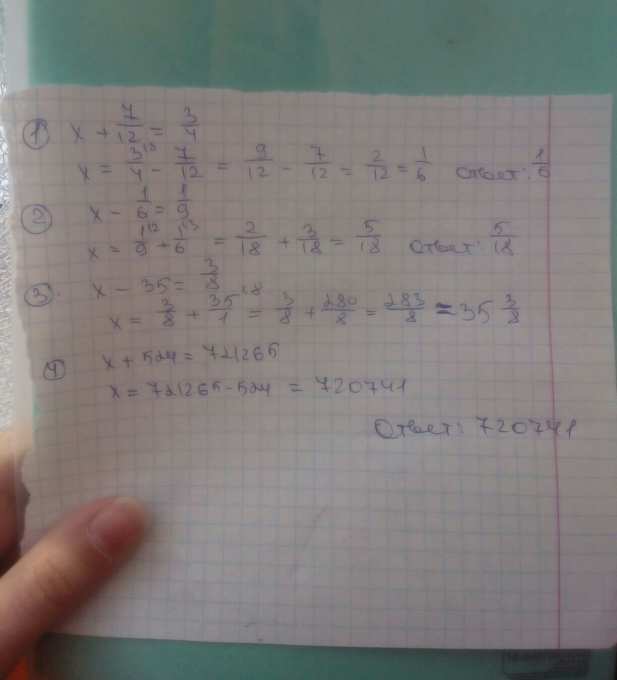 1) x + 7/12 = 3/4
x = 3/4 - 7/12 = 9/12 - 7/12 = 2/12 = 1/6 Ответ: 1/6
2) x - 1/6 = 1/9
x = 1/9 + 1/6 = 2/18 + 3/18 = 5/18 Ответ: 5/18
3) x - 35 = 3/8
x = 3/8 + 35/1 = 3/8 + 280/8 = 283/8 = 35 3/8
4) x + 524 = 721265
x = 721265 - 524 = 720741
Ответ: 720741